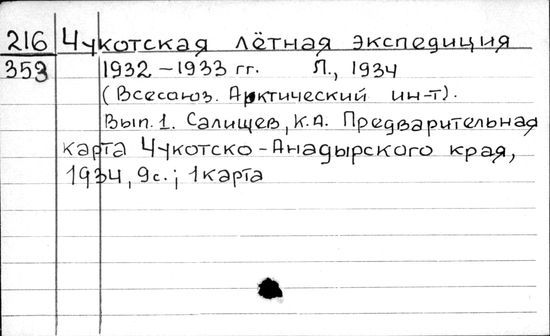 216 Чукотская лётная экспедиция
353 1932-1933 гг. Л., 1934
(Всесоюз. Арктический ин-т).
Вып. 1. Салищев, К.А. Предварительная
карта Чукотско-Анадырского края,
1934, 9с.; 1 карта